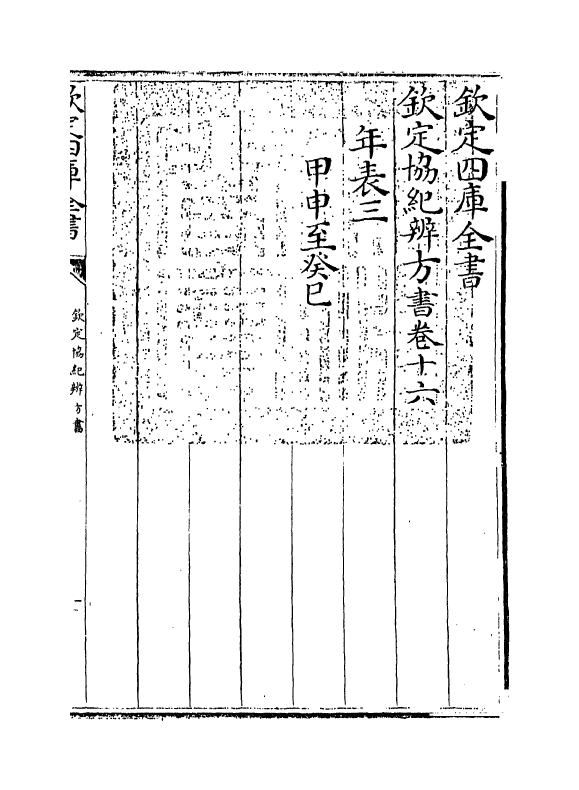 欽定四庫全書
欽定協紀辨方書卷十六
年表三
甲申至癸巳
欽定四庫全書
欽定協紀辨方書
一